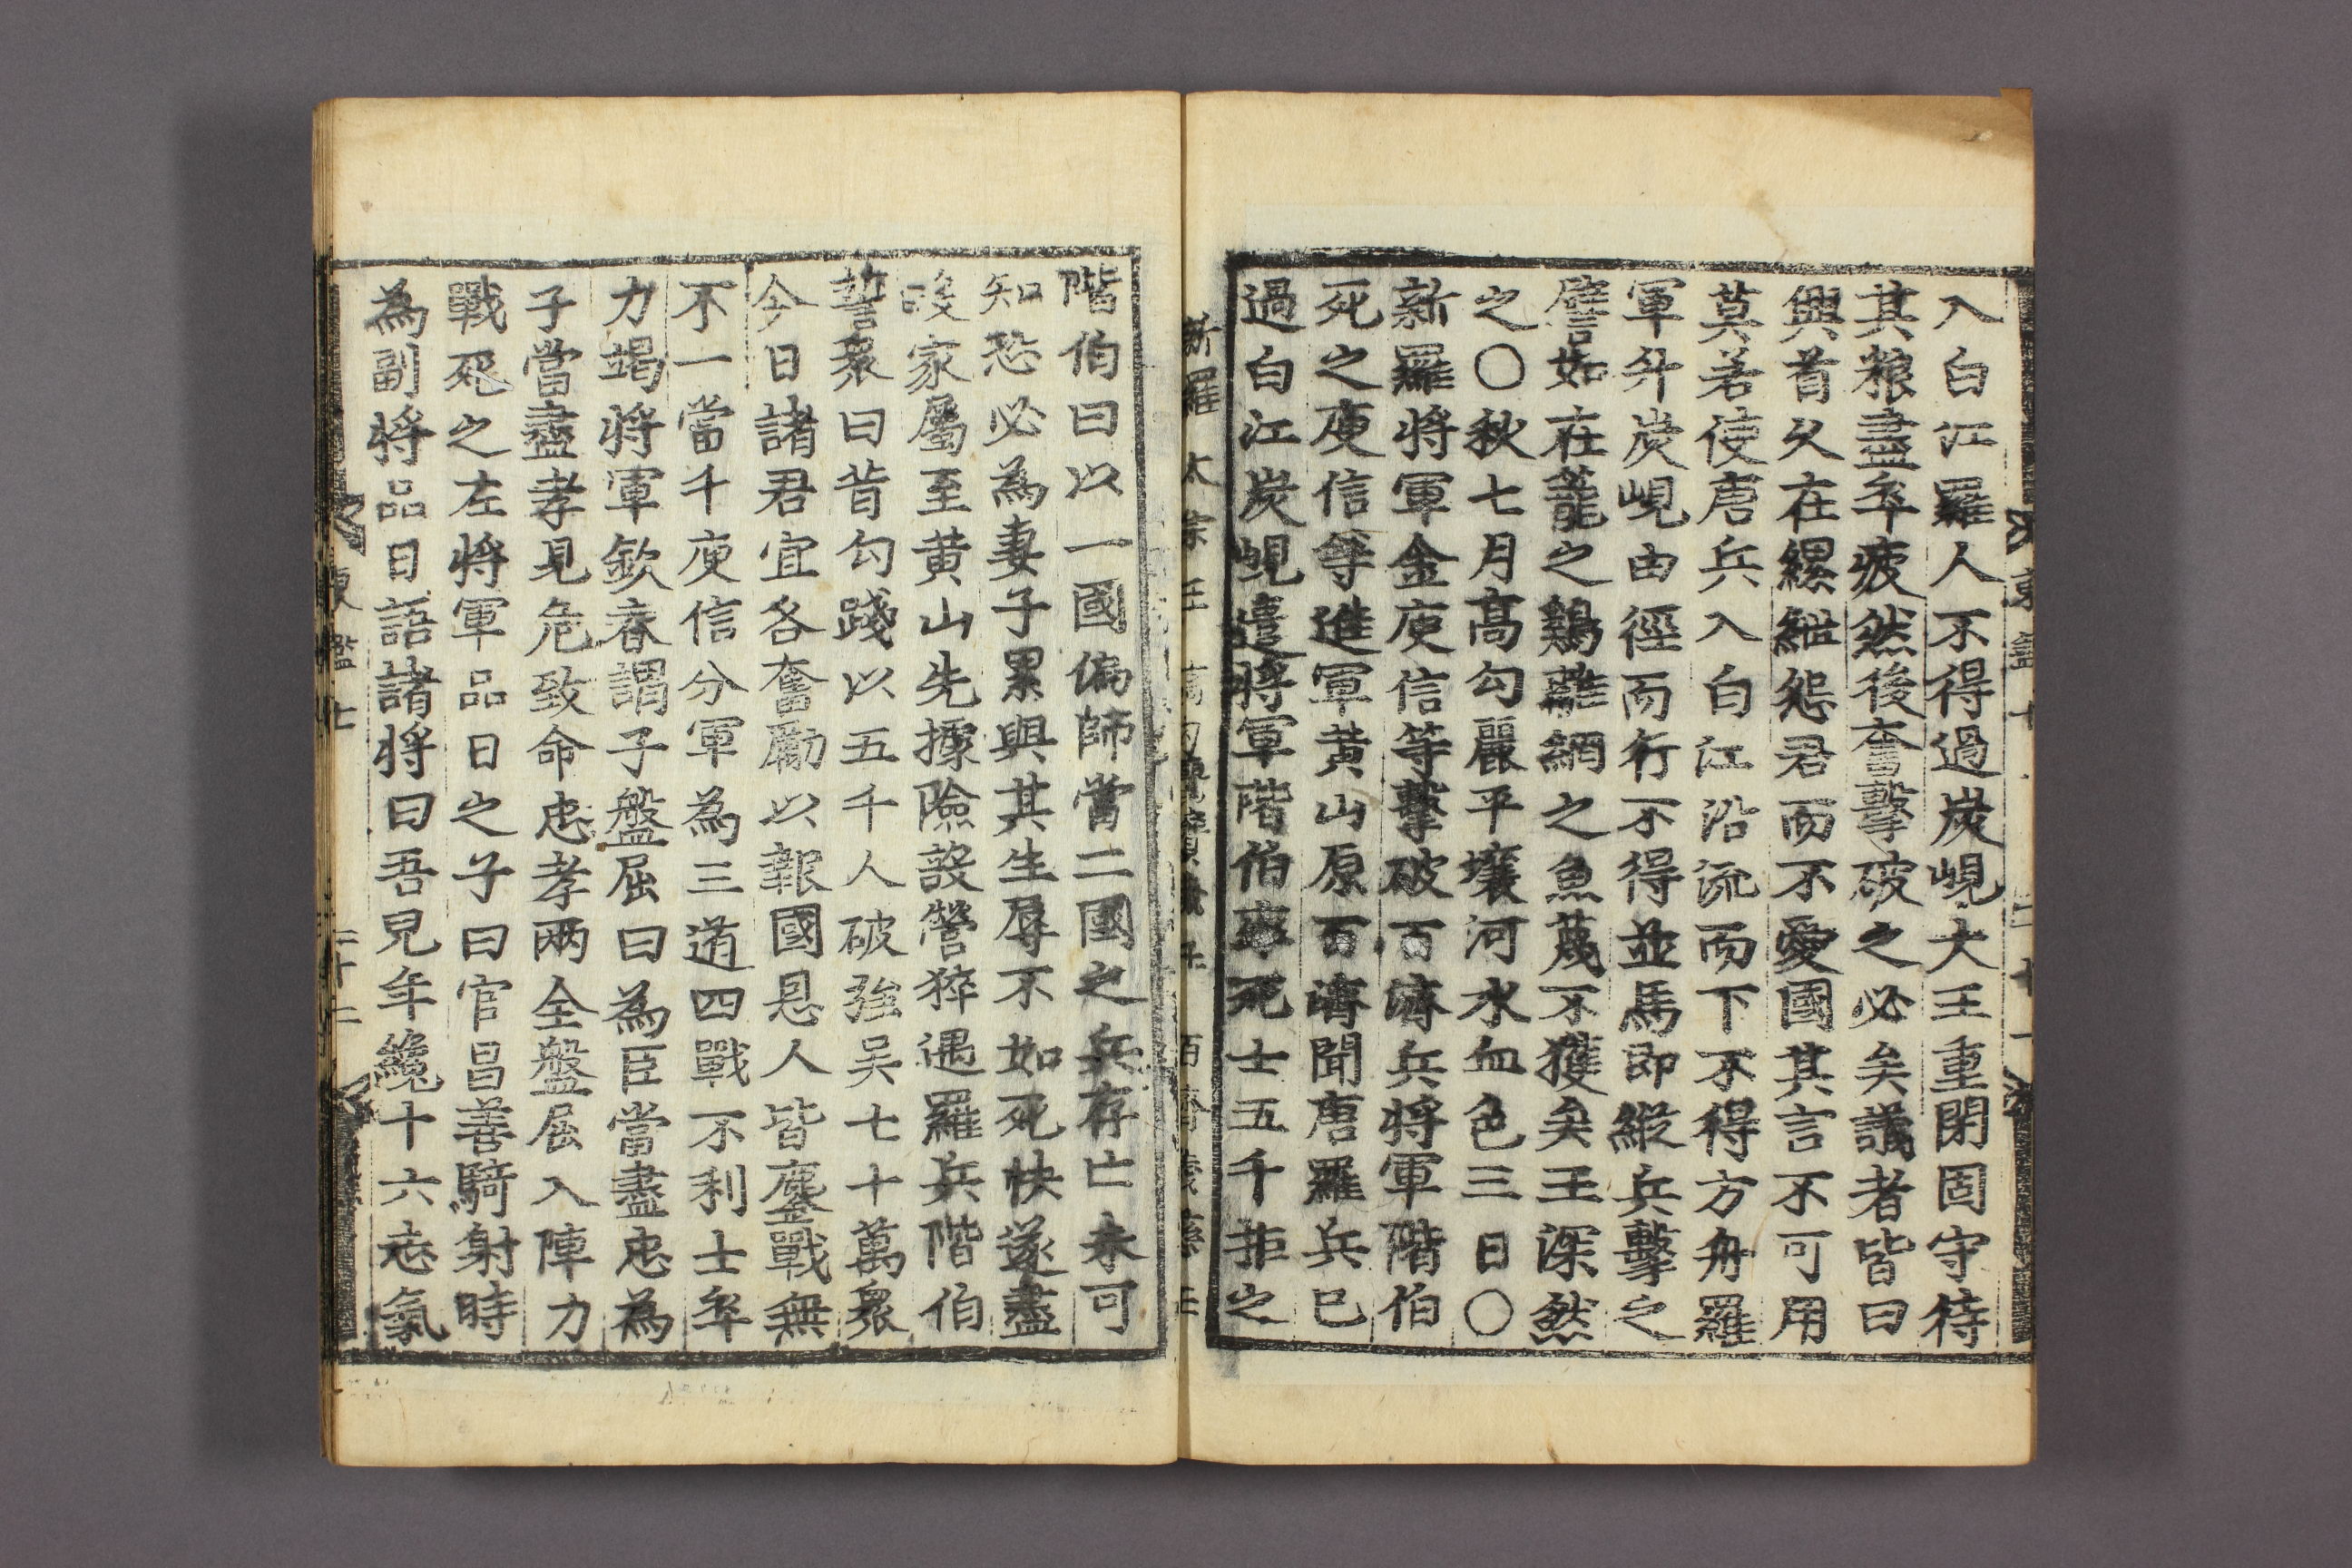 入白江羅人不得過炭峴大王重閉固守待
其粮盡卒疲然後奮擊破之必矣議者皆曰
興首久在縲紲怨君而不愛國其言不可用
莫若使唐兵入白江沿流而下不得方舟羅
軍升炭峴由徑而行不得並馬即縱兵擊之
譬如在籠之鷄離網之魚蔑不獲矣王深然
之〇秋七月高勾麗平壤河水血色三日〇
新羅將軍金庾信等擊破百濟兵將軍階伯
死之庾信等進軍黃山原百濟聞唐羅兵已
過白江炭峴遣將軍階伯率死士五千拒之
新羅 太宗王 百濟 義慈王
階伯曰以一國偏師當二國之兵存亡未可
知恐必為妻子累與其生辱不如死快遂盡
家屬至黃山先據險設營猝遇羅兵階伯
誓衆曰昔勾踐以五千人破強吳七十萬衆
今日諸君宜各奮勵以報國恩人皆鏖戰無
不一當千庾信分軍為三道四戰不利士卒
力竭將軍欽春謂子盤屈曰為臣當盡忠為
子當盡孝見危致命忠孝兩全盤屈入陣力
戰死之左將軍品日之子曰官昌善騎射時
為副將品日語諸將曰吾兒年纔十六志氣
東鑑七 二十二